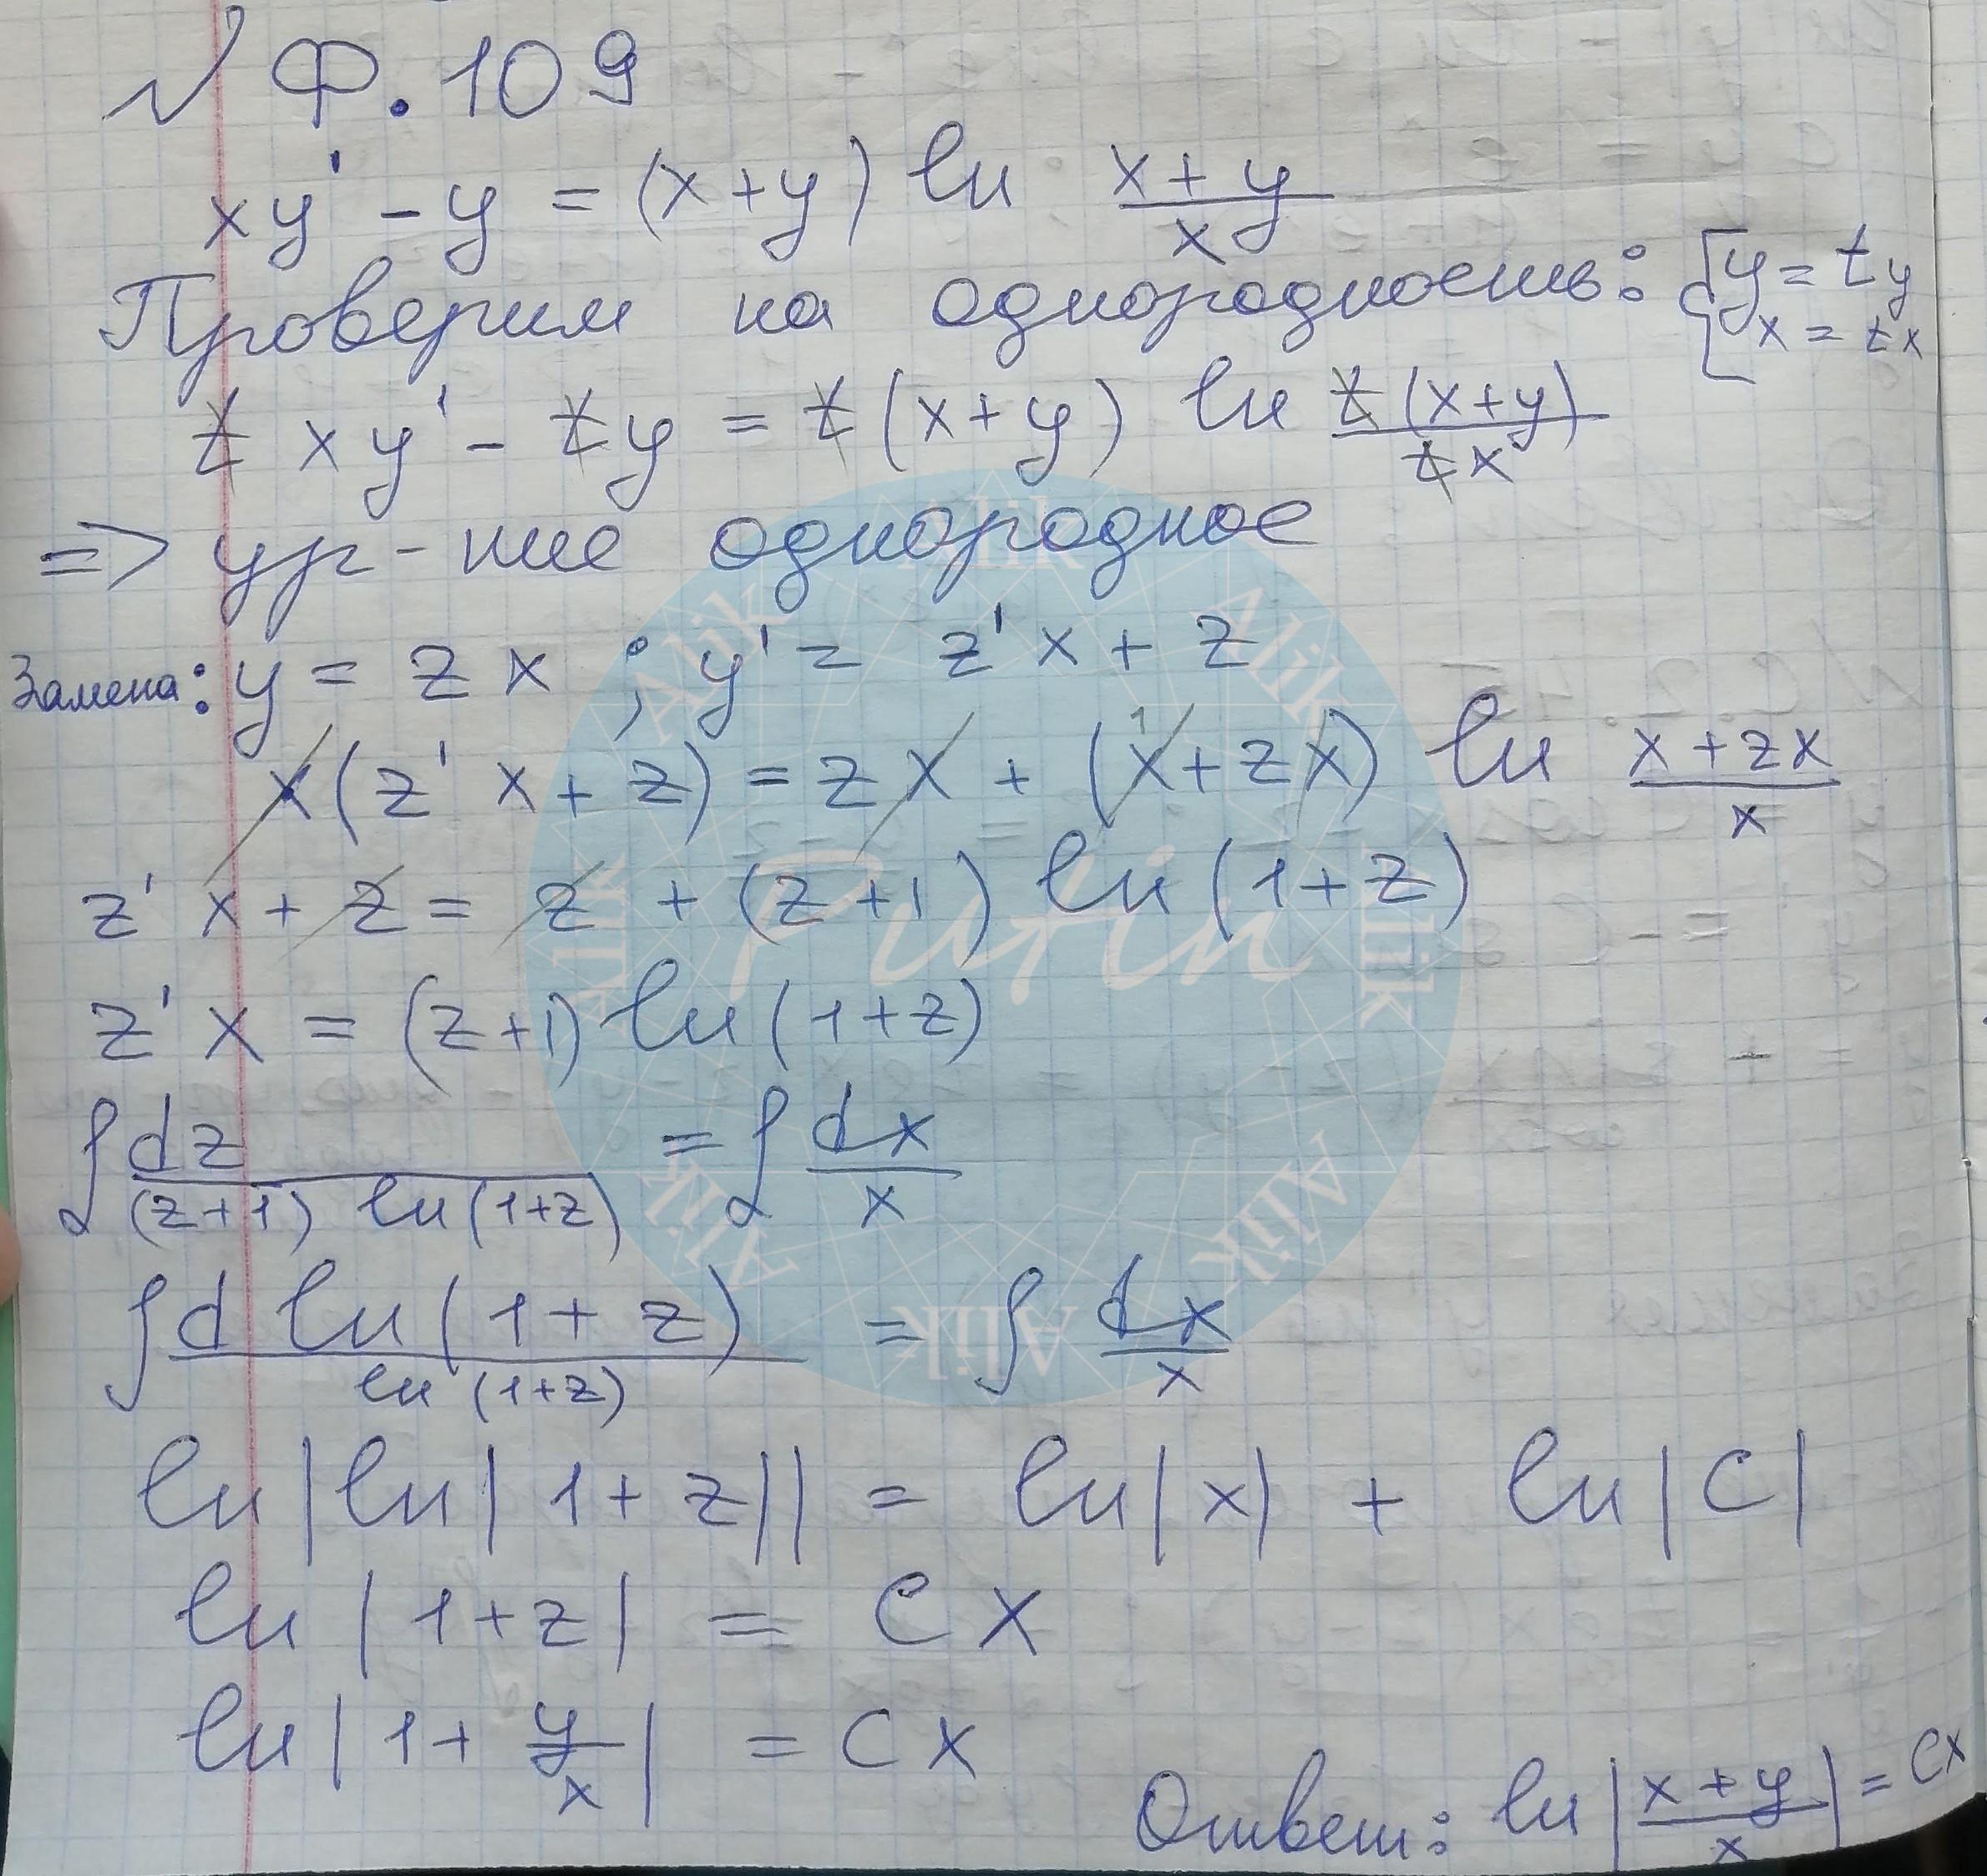 № Ф.109
xy' - y = (x+y) ln (x+y)/x
Проверим на однородность: {y = ty
x = tx
t xy' - ty = t(x+y) ln t(x+y)/tx
=> ур-ние однородное
Замена: y = zx ; y' = z'x + z
x(z'x + z) = zx + (x+zx) ln (x+zx)/x
z'x + z = z + (z+1) ln(1+z)
z'x = (z+1) ln(1+z)
∫ dz/((z+1) ln(1+z)) = ∫ dx/x
∫ d ln(1+z)/ln(1+z) = ∫ dx/x
ln|ln|1+z|| = ln|x| + ln|C|
ln|1+z| = Cx
ln|1+ y/x| = Cx
Ответ: ln|(x+y)/x| = Cx
Purin
Alik
Alik
Alik
Alik
Alik
Alik
Alik
Alik
Alik
Alik